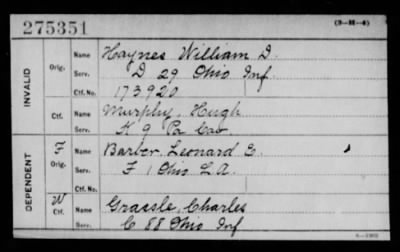 275351
(3-M-4)
INVALID
Orig.
Name Haynes William D.
Serv. D 29 Ohio Inf
Ctf. No. 173920
Ctf.
Name Murphy, Hugh
Serv. K 9 Pa Cav
DEPENDENT
F
Orig.
Name Barber, Leonard E.
Serv. F 1 Ohio L A.
Ctf. No.
W
Ctf.
Name Grassle, Charles
Serv. C 88 Ohio Inf